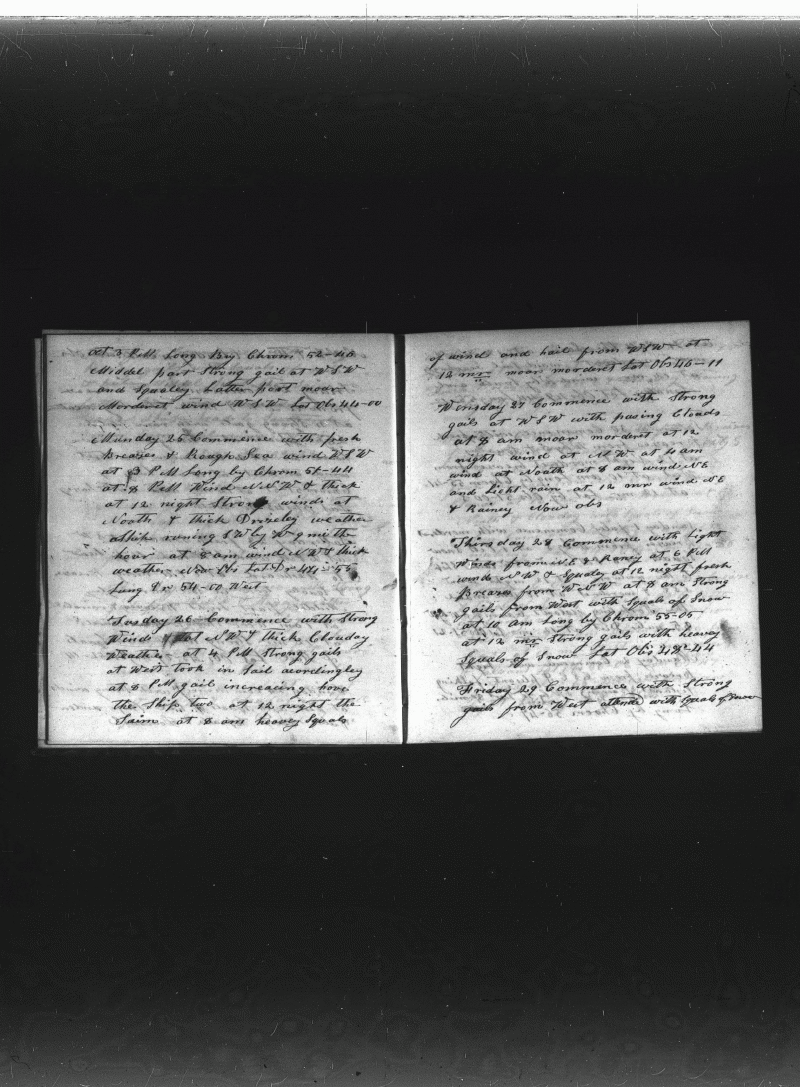 at 3 P.M. Long by Chrom 52-46
Middel part Strong gail at W S W
and Squaley Latter part moar
Morderet wind W S W Lat Obs 44-00
Munday 25 Commence with fresh
Breazes & Rough Sea wind W S W
at 3 P.M Long by Chrom 51-44
at 8 P.M Wind N N W & thick
at 12 night Strong winds at
North & thick Drizeley weather
Ship runing S W by W 9 mi the
hour at 8 am wind N W & thick
weather Now Obs Lat Dr 44-55
Long Dr 54-00 West
Tusday 26 Commence with Strong
Winds at N W & thick Clouday
Weather at 4 P.M Strong gails
at West took in Sail acordingley
at 8 P.M gail increacing hove
the Ship two at 12 night the
Saim at 8 am heavey Squals
of wind and hail from W S W at
12 mr moar morderet Lat Obs 46-11
Winsday 27 Commence with Strong
gails at W S W with pasing Clouds
at 8 am moar morderet at 12
night wind at N W at 4 am
wind at North at 8 am wind N E
and Light rain at 12 mr wind N E
& Rainey Now obs
Thirsday 28 Commence with Light
Winds from N E & Raney at 6 P.M
winds N W & Squaley at 12 night fresh
Breazes from W N W at 8 am Strong
gails from West with Squals of Snow
at 10 Am Long by Chrom 55-05
at 12 mr Strong gails with heavey
Squals of Snow Lat Obs 48-44
Friday 29 Commence with Strong
gails from West with Squals of Snow